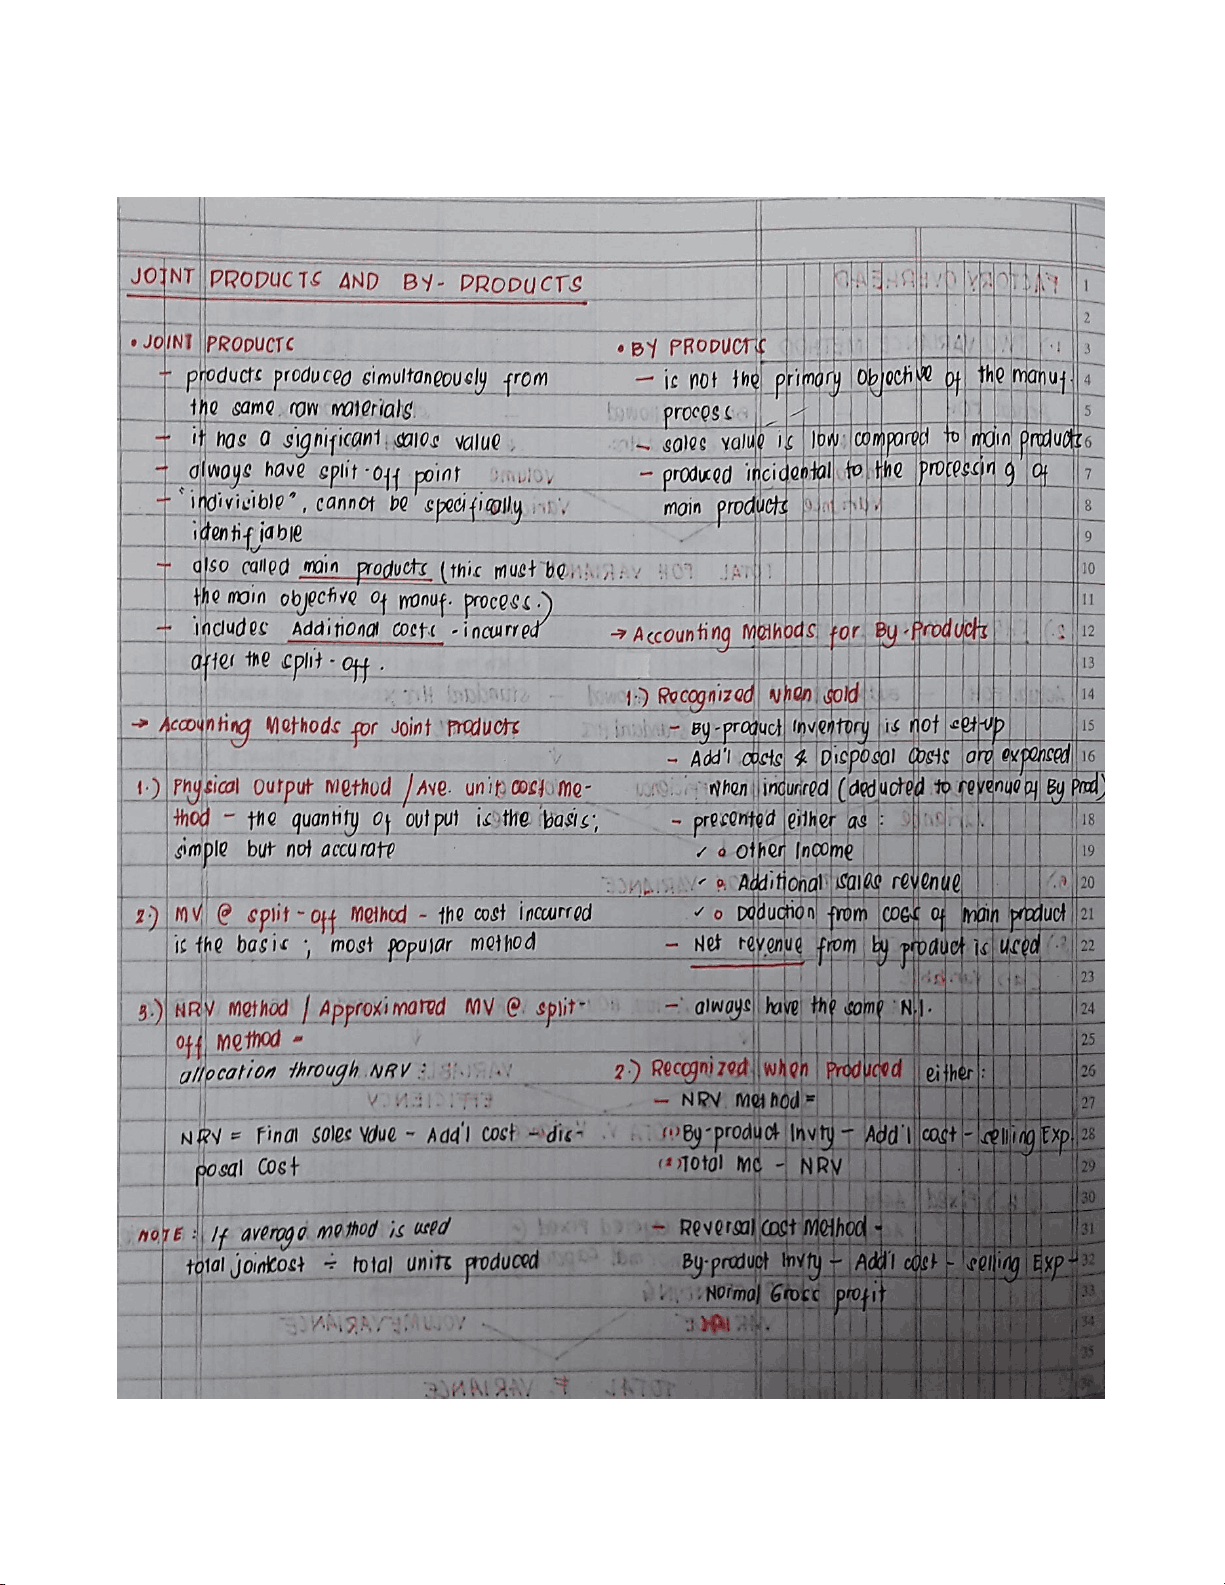 JOINT PRODUCTS AND BY-PRODUCTS
• JOINT PRODUCTS
- products produced simultaneously from
the same raw materials
- it has a significant sales value
- always have split-off point
- "indivisible", cannot be specifically
identifiable
- also called main products (this must be
the main objective of manuf. process.)
- includes Additional costs - incurred
after the split-off.
→ Accounting Methods for Joint Products
1.) Physical Output Method / Ave. unit cost me-
thod - the quantity of output is the basis;
simple but not accurate
2.) MV @ split-off Method - the cost incurred
is the basis ; most popular method
3.) NRV method / Approximated MV @ split-
off method -
allocation through NRV :
NRV = Final Sales Value - Add'l cost - dis-
posal cost
NOTE : If average method is used
total joint cost ÷ total units produced
• BY PRODUCTS
- is not the primary objective of the manuf.
process
- sales value is low compared to main products
- produced incidental to the processing of
main products
→ Accounting Methods for By-Products
1.) Recognized when sold
- By-product Inventory is not set-up
- Add'l costs & Disposal Costs are expensed
when incurred (deducted to revenue of By Prod)
- presented either as :
✓ o Other Income
✓ o Additional sales revenue
✓ o Deduction from COGS of main product
- Net revenue from by product is used
- always have the same N.I.
2.) Recognized when Produced either :
- NRV method =
(1) By-product Invty - Add'l cost - selling Exp.
(2) Total MC - NRV
- Reversal cost Method -
By-product Invty - Add'l cost - selling Exp -
Normal Gross profit
1
2
3
4
5
6
7
8
9
10
11
12
13
14
15
16
18
19
20
21
22
23
24
25
26
27
28
29
30
31
32
33
34
35